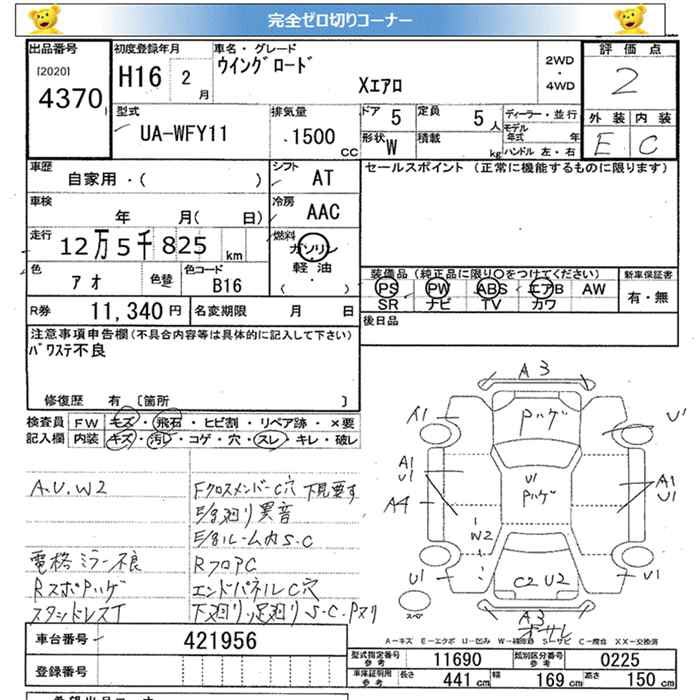 完全ゼロ切りコーナー
出品番号 初度登録年月 車名・グレード 評価点
[2020] 4370 H16 2月 ウイングロード Xエアロ 2WD・4WD 2
型式 排気量 ドア 定員 ディーラー・並行 外装 内装
UA-WFY11 1500cc 5 5人 モデル年式 年 E C
形状 W 積載 kg ハンドル 左・右
車歴 自家用・( ) シフト AT セールスポイント (正常に機能するものに限ります)
車検 年 月( 日) 冷房 AAC
走行 12万5千825km 燃料 ガソリン 軽油 ( )
色 アオ 色替 色コード B16
装備品(純正品に限り○をつけてください) 新車保証書
PS PW ABS エアB AW 有・無
SR ナビ TV カワ
R券 11,340円 名変期限 月 日 後日品
注意事項申告欄(不具合内容等は具体的に記入して下さい)
パワステ不良
修復歴 有 [箇所 ]
検査員 FW キズ・飛石・ヒビ割・リペア跡・×要
記入欄 内装 キズ・汚レ・コゲ・穴・スレ・キレ・破レ
A.U.W2 FクロスメンバーC穴 下見要す
E/g廻り異音
E/gルーム内S.C
電格ミラー不良 RフロアC
RスポPハゲ エンドパネルC穴
下廻り、足廻りS.C.Pスリ
A3
A1 Pハゲ U1
A1 U1 U1 Pハゲ A1 U1
A4 W2
U1 C2 U2 U1
スペア A3
A-キズ E-エクボ U-凹み S-サビ C-腐食 XX-交換済
車台番号 421956 型式指定番号 参考 11690 類別区分番号 参考 0225
登録番号 車庫証明用 参考 長さ 441cm 幅 169cm 高さ 150cm